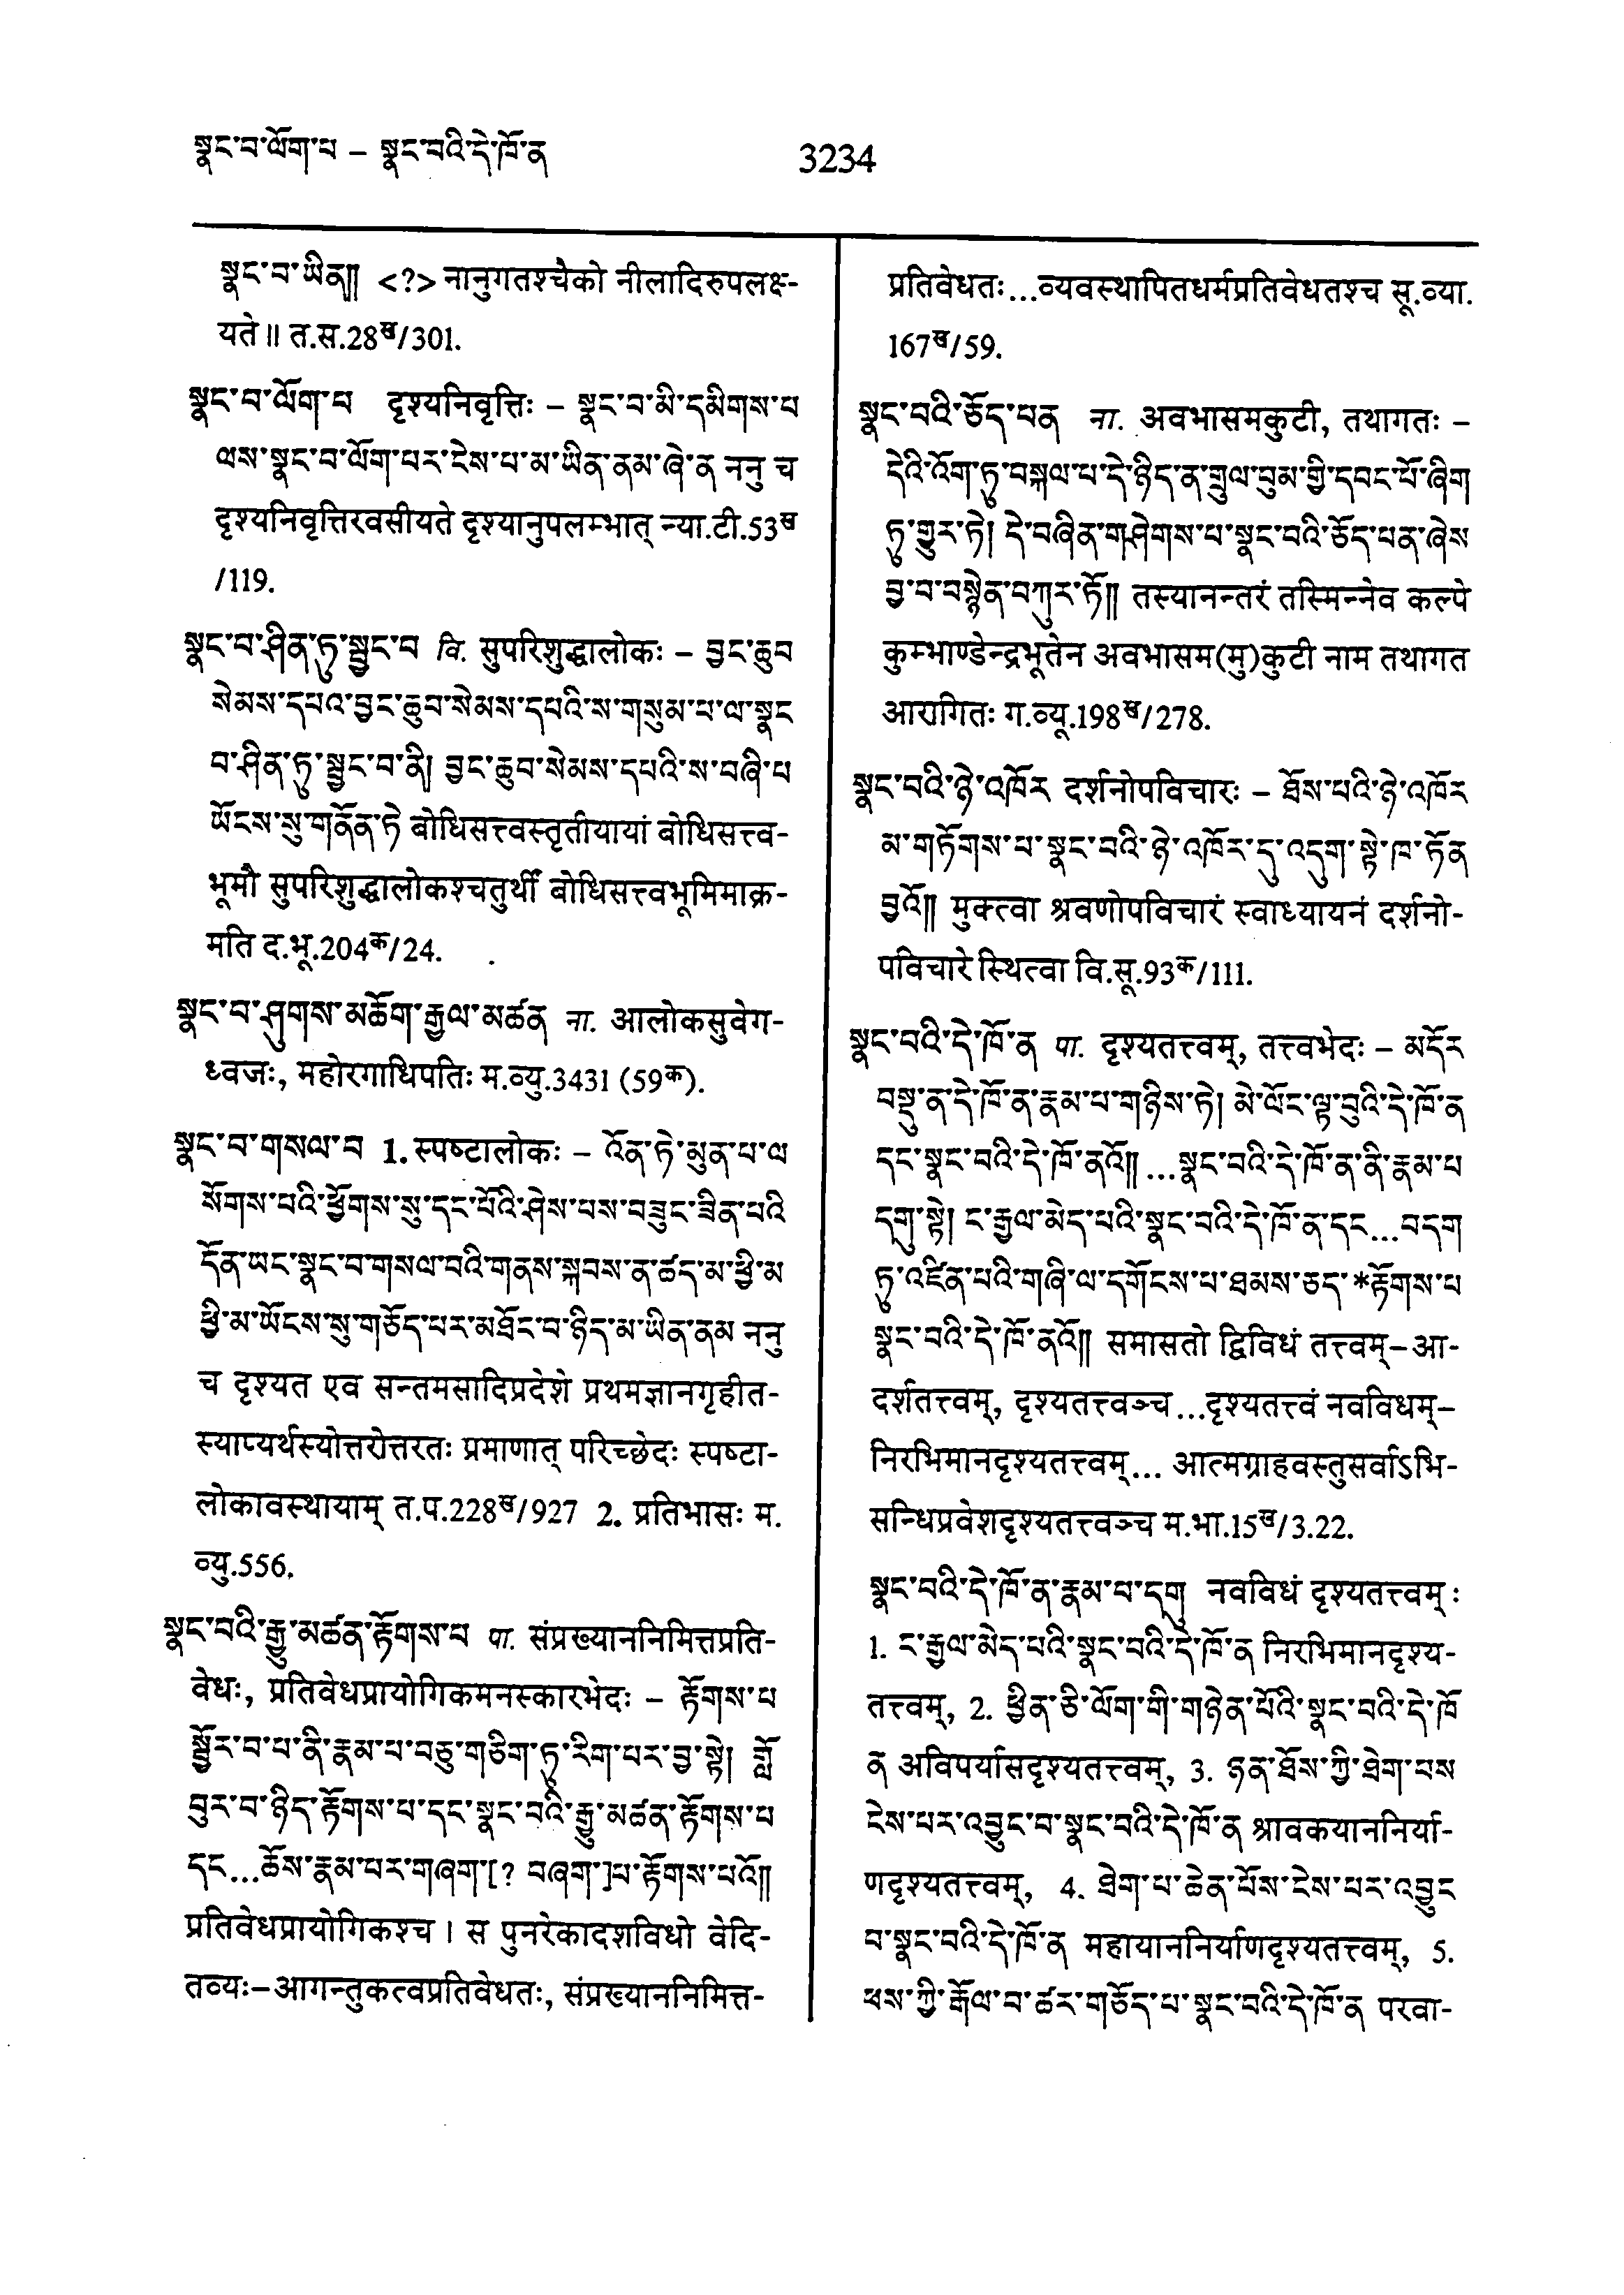 སྣང་བ་ལོག་པ – སྣང་བའི་དེ་ཁོ་ན
3234
སྣང་བ་ཡིན།། <?> नानुगतश्चैको नीलादिरुपलक्ष-
यते ॥ त.स.28ख/301.
སྣང་བ་ལོག་པ दृश्यनिवृत्तिः – སྣང་བ་མི་དམིགས་པ
ལས་སྣང་བ་ལོག་པར་ངེས་པ་མ་ཡིན་ནམ་ཞེ་ན ननु च
दृश्यनिवृत्तिरवसीयते दृश्यानुपलम्भात् न्या.टी.53ख
/119.
སྣང་བ་ཤིན་ཏུ་སྦྱང་བ वि. सुपरिशुद्धालोकः – བྱང་ཆུབ
སེམས་དཔའ་བྱང་ཆུབ་སེམས་དཔའི་ས་གསུམ་པ་ལ་སྣང
བ་ཤིན་ཏུ་སྦྱང་བ་ནི། བྱང་ཆུབ་སེམས་དཔའི་ས་བཞི་པ
ཡོངས་སུ་གནོན་ཏེ बोधिसत्त्वस्तृतीयायां बोधिसत्त्व-
भूमौ सुपरिशुद्धालोकश्चतुर्थीं बोधिसत्त्वभूमिमाक्र-
मति द.भू.204क/24.
སྣང་བ་ཤུགས་མཆོག་རྒྱལ་མཚན ना. आलोकसुवेग-
ध्वजः, महोरगाधिपतिः म.व्यु.3431 (59क).
སྣང་བ་གསལ་བ 1. स्पष्टालोकः – འོན་ཏེ་མུན་པ་ལ
སོགས་པའི་ཕྱོགས་སུ་དང་པོའི་ཤེས་པས་བཟུང་ཟིན་པའི
དོན་ཡང་སྣང་བ་གསལ་བའི་གནས་སྐབས་ན་ཚད་མ་ཕྱི་མ
ཕྱི་མ་ཡོངས་སུ་གཅོད་པར་མཐོང་བ་ཉིད་མ་ཡིན་ནམ ननु
च दृश्यत एव सन्तमसादिप्रदेशे प्रथमज्ञानगृहीत-
स्याप्यर्थस्योत्तरोत्तरतः प्रमाणात् परिच्छेदः स्पष्टा-
लोकावस्थायाम् त.प.228ख/927 2. प्रतिभासः म.
व्यु.556.
སྣང་བའི་རྒྱུ་མཚན་རྟོགས་པ पा. संप्रख्याननिमित्तप्रति-
वेधः, प्रतिवेधप्रायोगिकमनस्कारभेदः – རྟོགས་པ
སྦྱོར་བ་པ་ནི་རྣམ་པ་བཅུ་གཅིག་ཏུ་རིག་པར་བྱ་སྟེ། གློ
བུར་བ་ཉིད་རྟོགས་པ་དང་སྣང་བའི་རྒྱུ་མཚན་རྟོགས་པ
དང...ཆོས་རྣམ་པར་གཞག་[? བཞག་]པ་རྟོགས་པའོ།།
प्रतिवेधप्रायोगिकश्च । स पुनरेकादशविधो वेदि-
तव्यः–आगन्तुकत्वप्रतिवेधतः, संप्रख्याननिमित्त-
प्रतिवेधतः...व्यवस्थापितधर्मप्रतिवेधतश्च सू.व्या.
167ख/59.
སྣང་བའི་ཅོད་པན ना. अवभासमकुटी, तथागतः –
དེའི་འོག་ཏུ་བསྐལ་པ་དེ་ཉིད་ན་གྲུལ་བུམ་གྱི་དབང་པོ་ཞིག
ཏུ་གྱུར་ཏེ། དེ་བཞིན་གཤེགས་པ་སྣང་བའི་ཅོད་པན་ཞེས
བྱ་བ་བསྙེན་བཀུར་ཏོ།། तस्यानन्तरं तस्मिन्नेव कल्पे
कुम्भाण्डेन्द्रभूतेन अवभासम(मु)कुटी नाम तथागत
आरागितः ग.व्यू.198ख/278.
སྣང་བའི་ཉེ་འཁོར दर्शनोपविचारः – ཐོས་པའི་ཉེ་འཁོར
མ་གཏོགས་པ་སྣང་བའི་ཉེ་འཁོར་དུ་འདུག་སྟེ་ཁ་ཏོན
བྱའོ།། मुक्त्वा श्रवणोपविचारं स्वाध्यायनं दर्शनो-
पविचारे स्थित्वा वि.सू.93क/111.
སྣང་བའི་དེ་ཁོ་ན पा. दृश्यतत्त्वम्, तत्त्वभेदः – མདོར
བསྡུ་ན་དེ་ཁོ་ན་རྣམ་པ་གཉིས་ཏེ། མེ་ལོང་ལྟ་བུའི་དེ་ཁོ་ན
དང་སྣང་བའི་དེ་ཁོ་ནའོ།། ...སྣང་བའི་དེ་ཁོ་ན་ནི་རྣམ་པ
དགུ་སྟེ། ང་རྒྱལ་མེད་པའི་སྣང་བའི་དེ་ཁོ་ན་དང...བདག
ཏུ་འཛིན་པའི་གཞི་ལ་དགོངས་པ་ཐམས་ཅད་*རྟོགས་པ
སྣང་བའི་དེ་ཁོ་ནའོ།། समासतो द्विविधं तत्त्वम्–आ-
दर्शतत्त्वम्, दृश्यतत्त्वञ्च...दृश्यतत्त्वं नवविधम्–
निरभिमानदृश्यतत्त्वम्... आत्मग्राहवस्तुसर्वाऽभि-
सन्धिप्रवेशदृश्यतत्त्वञ्च म.भा.15ख/3.22.
སྣང་བའི་དེ་ཁོ་ན་རྣམ་པ་དགུ नवविधं दृश्यतत्त्वम् :
1. ང་རྒྱལ་མེད་པའི་སྣང་བའི་དེ་ཁོ་ན निरभिमानदृश्य-
तत्त्वम्, 2. ཕྱིན་ཅི་ལོག་གི་གཉེན་པོའི་སྣང་བའི་དེ་ཁོ
ན अविपर्यासदृश्यतत्त्वम्, 3. ཉན་ཐོས་ཀྱི་ཐེག་པས
ངེས་པར་འབྱུང་བ་སྣང་བའི་དེ་ཁོ་ན श्रावकयाननिर्या-
णदृश्यतत्त्वम्, 4. ཐེག་པ་ཆེན་པོས་ངེས་པར་འབྱུང
བ་སྣང་བའི་དེ་ཁོ་ན महायाननिर्याणदृश्यतत्त्वम्, 5.
ཕས་ཀྱི་རྒོལ་བ་ཚར་གཅོད་པ་སྣང་བའི་དེ་ཁོ་ན परवा-